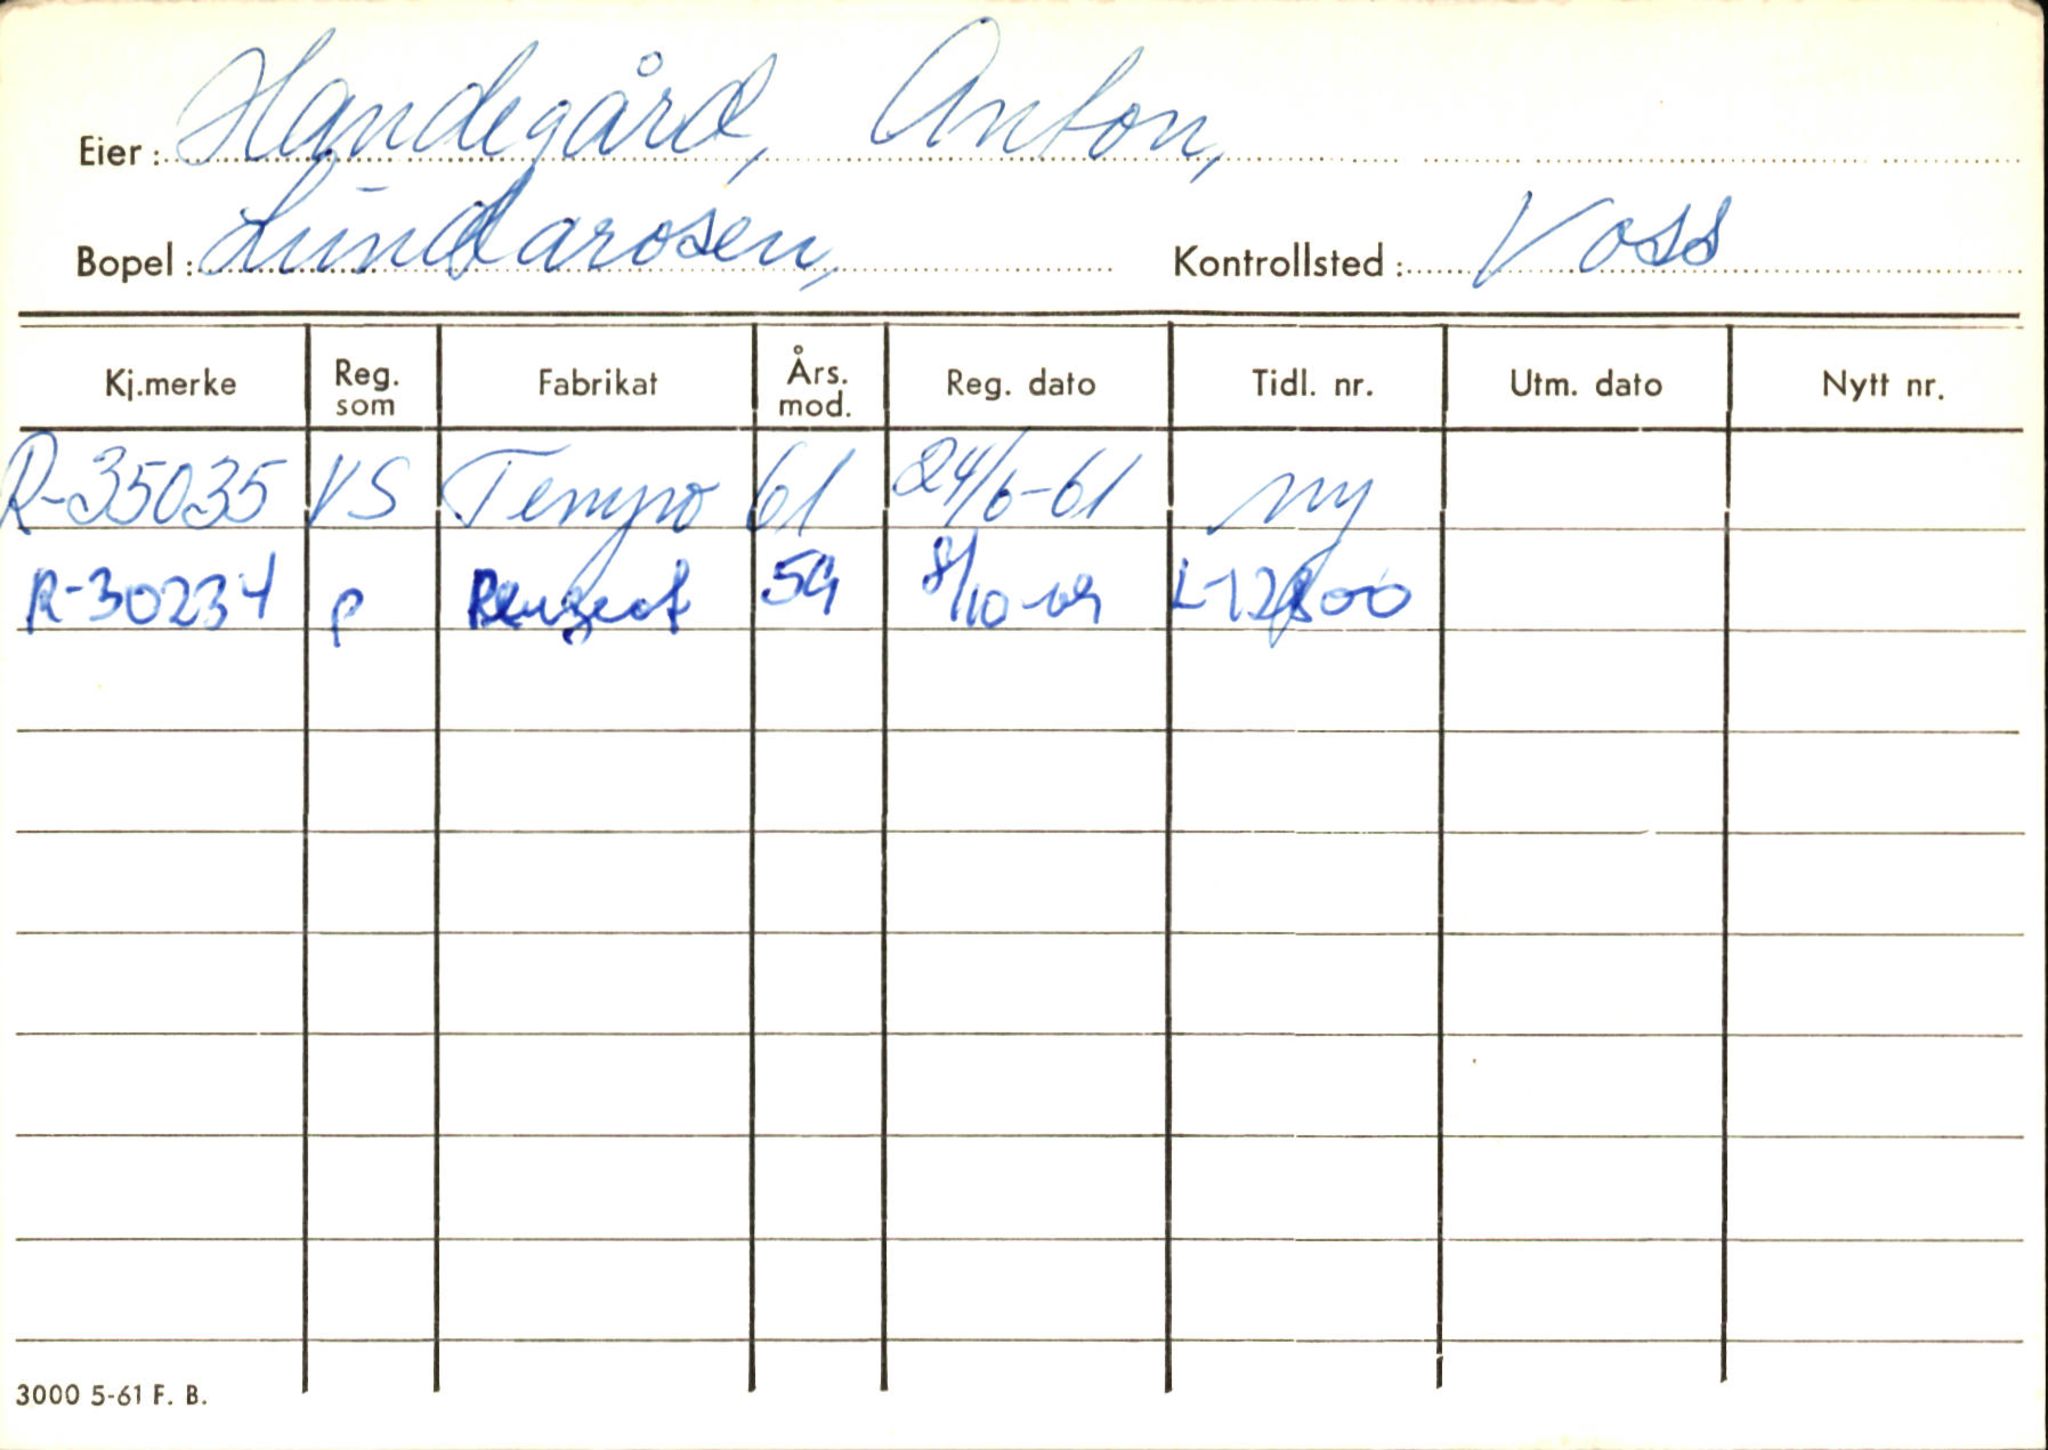 Eier: Handegård, Anton,
Bopel: Lundarosen, Kontrollsted: Voss
Kj.merke Reg. som Fabrikat Års. mod. Reg. dato Tidl. nr. Utm. dato Nytt nr.
R-35035 VS Tempo 61 24/6-61 ny
R-30234 P Peugeot 59 8/10-69 L-12800
3000 5-61 F. B.